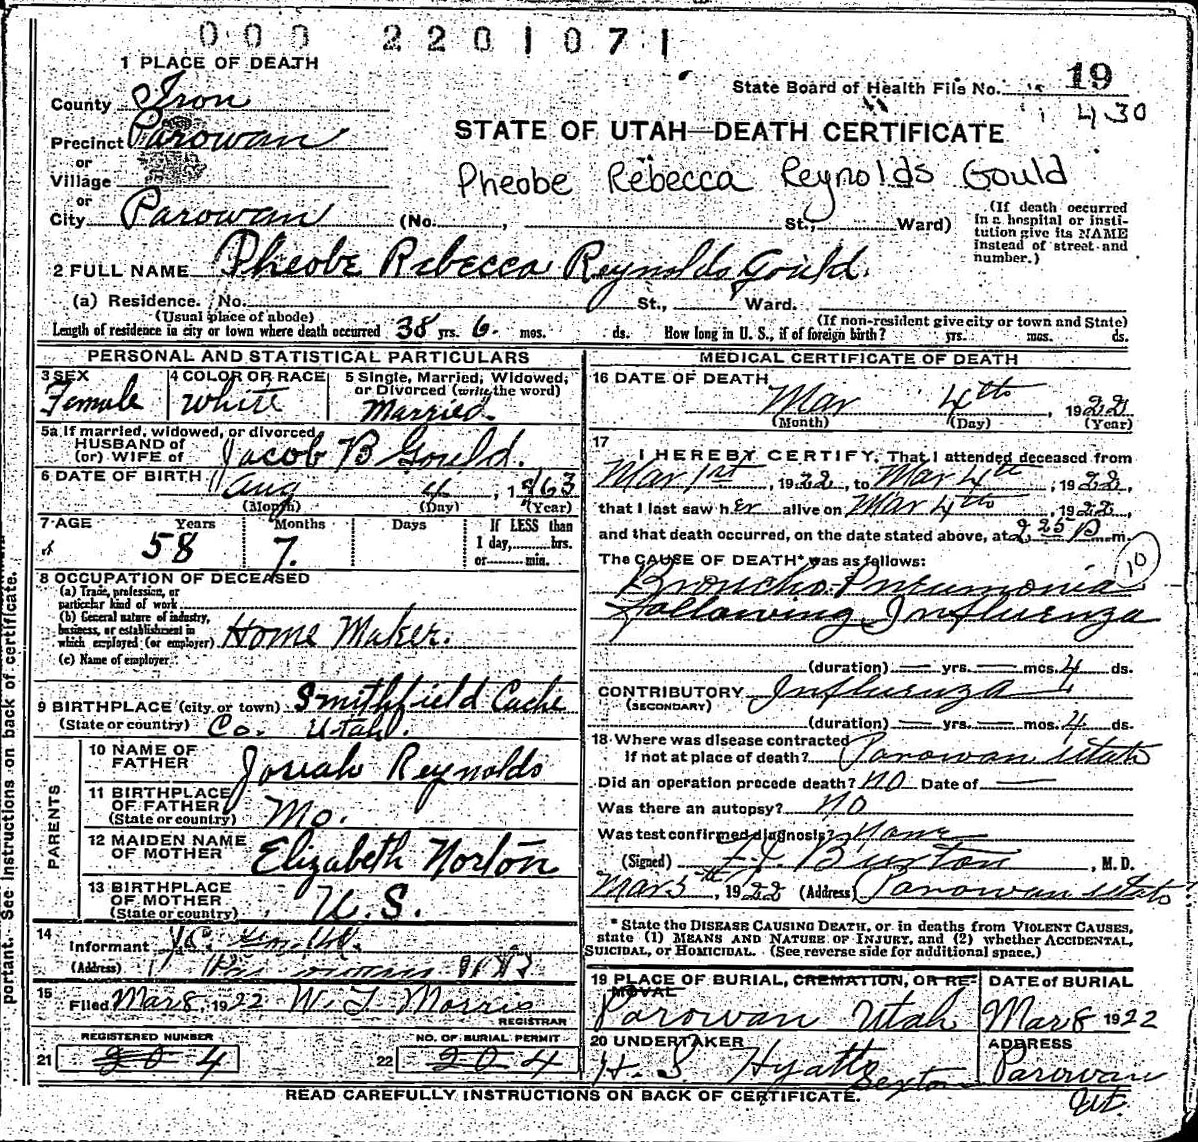 000 2201071
1 PLACE OF DEATH
State Board of Health File No. 19
430
County Iron
Precinct Parowan
or
Village
or
City Parowan (No. , St., Ward)
STATE OF UTAH—DEATH CERTIFICATE
Pheobe Rebecca Reynolds Gould
(If death occurred
in a hospital or insti-
tution give its NAME
instead of street and
number.)
2 FULL NAME Pheobe Rebecca Reynolds Gould.
(a) Residence. No. St., Ward.
(Usual place of abode) (If non-resident give city or town and State)
Length of residence in city or town where death occurred 38 yrs. 6. mos. ds. How long in U. S., if of foreign birth? yrs. mos. ds.
PERSONAL AND STATISTICAL PARTICULARS
3 SEX
Female
4 COLOR OR RACE
White
5 Single, Married, Widowed,
or Divorced (write the word)
Married.
5a If married, widowed, or divorced
HUSBAND of
(or) WIFE of Jacob B Gould.
6 DATE OF BIRTH Aug 4, 1863
(Month) (Day) (Year)
7 AGE Years Months Days If LESS than
1 day, hrs.
or min.
58 7.
8 OCCUPATION OF DECEASED
(a) Trade, profession, or
particular kind of work
(b) General nature of industry,
business, or establishment in
which employed (or employer) Home Maker.
(c) Name of employer
9 BIRTHPLACE (city or town) Smithfield Cache
(State or country) Co. Utah.
PARENTS
10 NAME OF
FATHER Josiah Reynolds
11 BIRTHPLACE
OF FATHER
(State or country) Mo.
12 MAIDEN NAME
OF MOTHER Elizabeth Norton
13 BIRTHPLACE
OF MOTHER
(State or country) U.S.
14
Informant Gould.
(Address) Parowan
15
Filed Mar 8, 1922 W. L. Morris
REGISTRAR
REGISTERED NUMBER
21 204
NO. OF BURIAL PERMIT
22 204
MEDICAL CERTIFICATE OF DEATH
16 DATE OF DEATH
Mar 4th, 1922
(Month) (Day) (Year)
17
I HEREBY CERTIFY, That I attended deceased from
Mar 1st, 1922, to Mar 4th, 1922,
that I last saw her alive on Mar 4th, 1922,
and that death occurred, on the date stated above, at 2 25 P. m.
The CAUSE OF DEATH* was as follows:
10
Broncho-Pneumonia
following Influenza
(duration) — yrs. — mos. 4 ds.
CONTRIBUTORY Influenza
(SECONDARY)
(duration) — yrs. — mos. 4 ds.
18 Where was disease contracted
if not at place of death? Parowan Utah
Did an operation precede death? No Date of —
Was there an autopsy? No
Was test confirmed diagnosis? None
(Signed) Burton, M. D.
Mar 5th, 1922 (Address) Parowan Utah
*State the DISEASE CAUSING DEATH, or in deaths from VIOLENT CAUSES,
state (1) MEANS AND NATURE OF INJURY, and (2) whether ACCIDENTAL,
SUICIDAL, or HOMICIDAL. (See reverse side for additional space.)
19 PLACE OF BURIAL, CREMATION, OR RE-
MOVAL
Parowan Utah
DATE OF BURIAL
Mar 8 1922
20 UNDERTAKER
H. S. Hyatt
Sexton
ADDRESS
Parowan
Ut.
READ CAREFULLY INSTRUCTIONS ON BACK OF CERTIFICATE.
portant. See instructions on back of certificate.